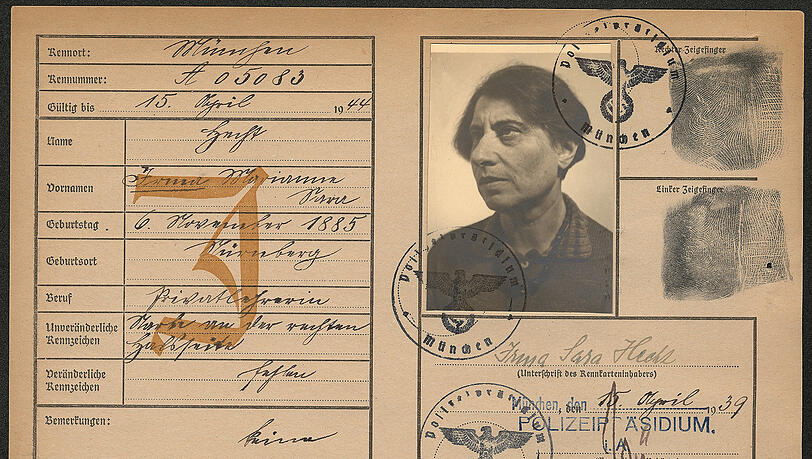 Kennort: München
Kennummer: A 05083
Gültig bis 15. April 1944
Name Hecht
Vornamen Irma Marianne
Sara
Geburtstag 6. November 1885
Geburtsort Nürnberg
Beruf Privatlehrerin
Unveränderliche Kennzeichen Narbe an der rechten
Halsseite
Veränderliche Kennzeichen fehlen
Bemerkungen: keine
J
Polizeipräsidium
München
Rechter Zeigefinger
Linker Zeigefinger
Polizeipräsidium
München
Irma Sara Hecht
(Unterschrift des Kennkarteninhabers)
München, den 15. April 1939
POLIZEIPRÄSIDIUM.
i.A.
Polizeipräsidium